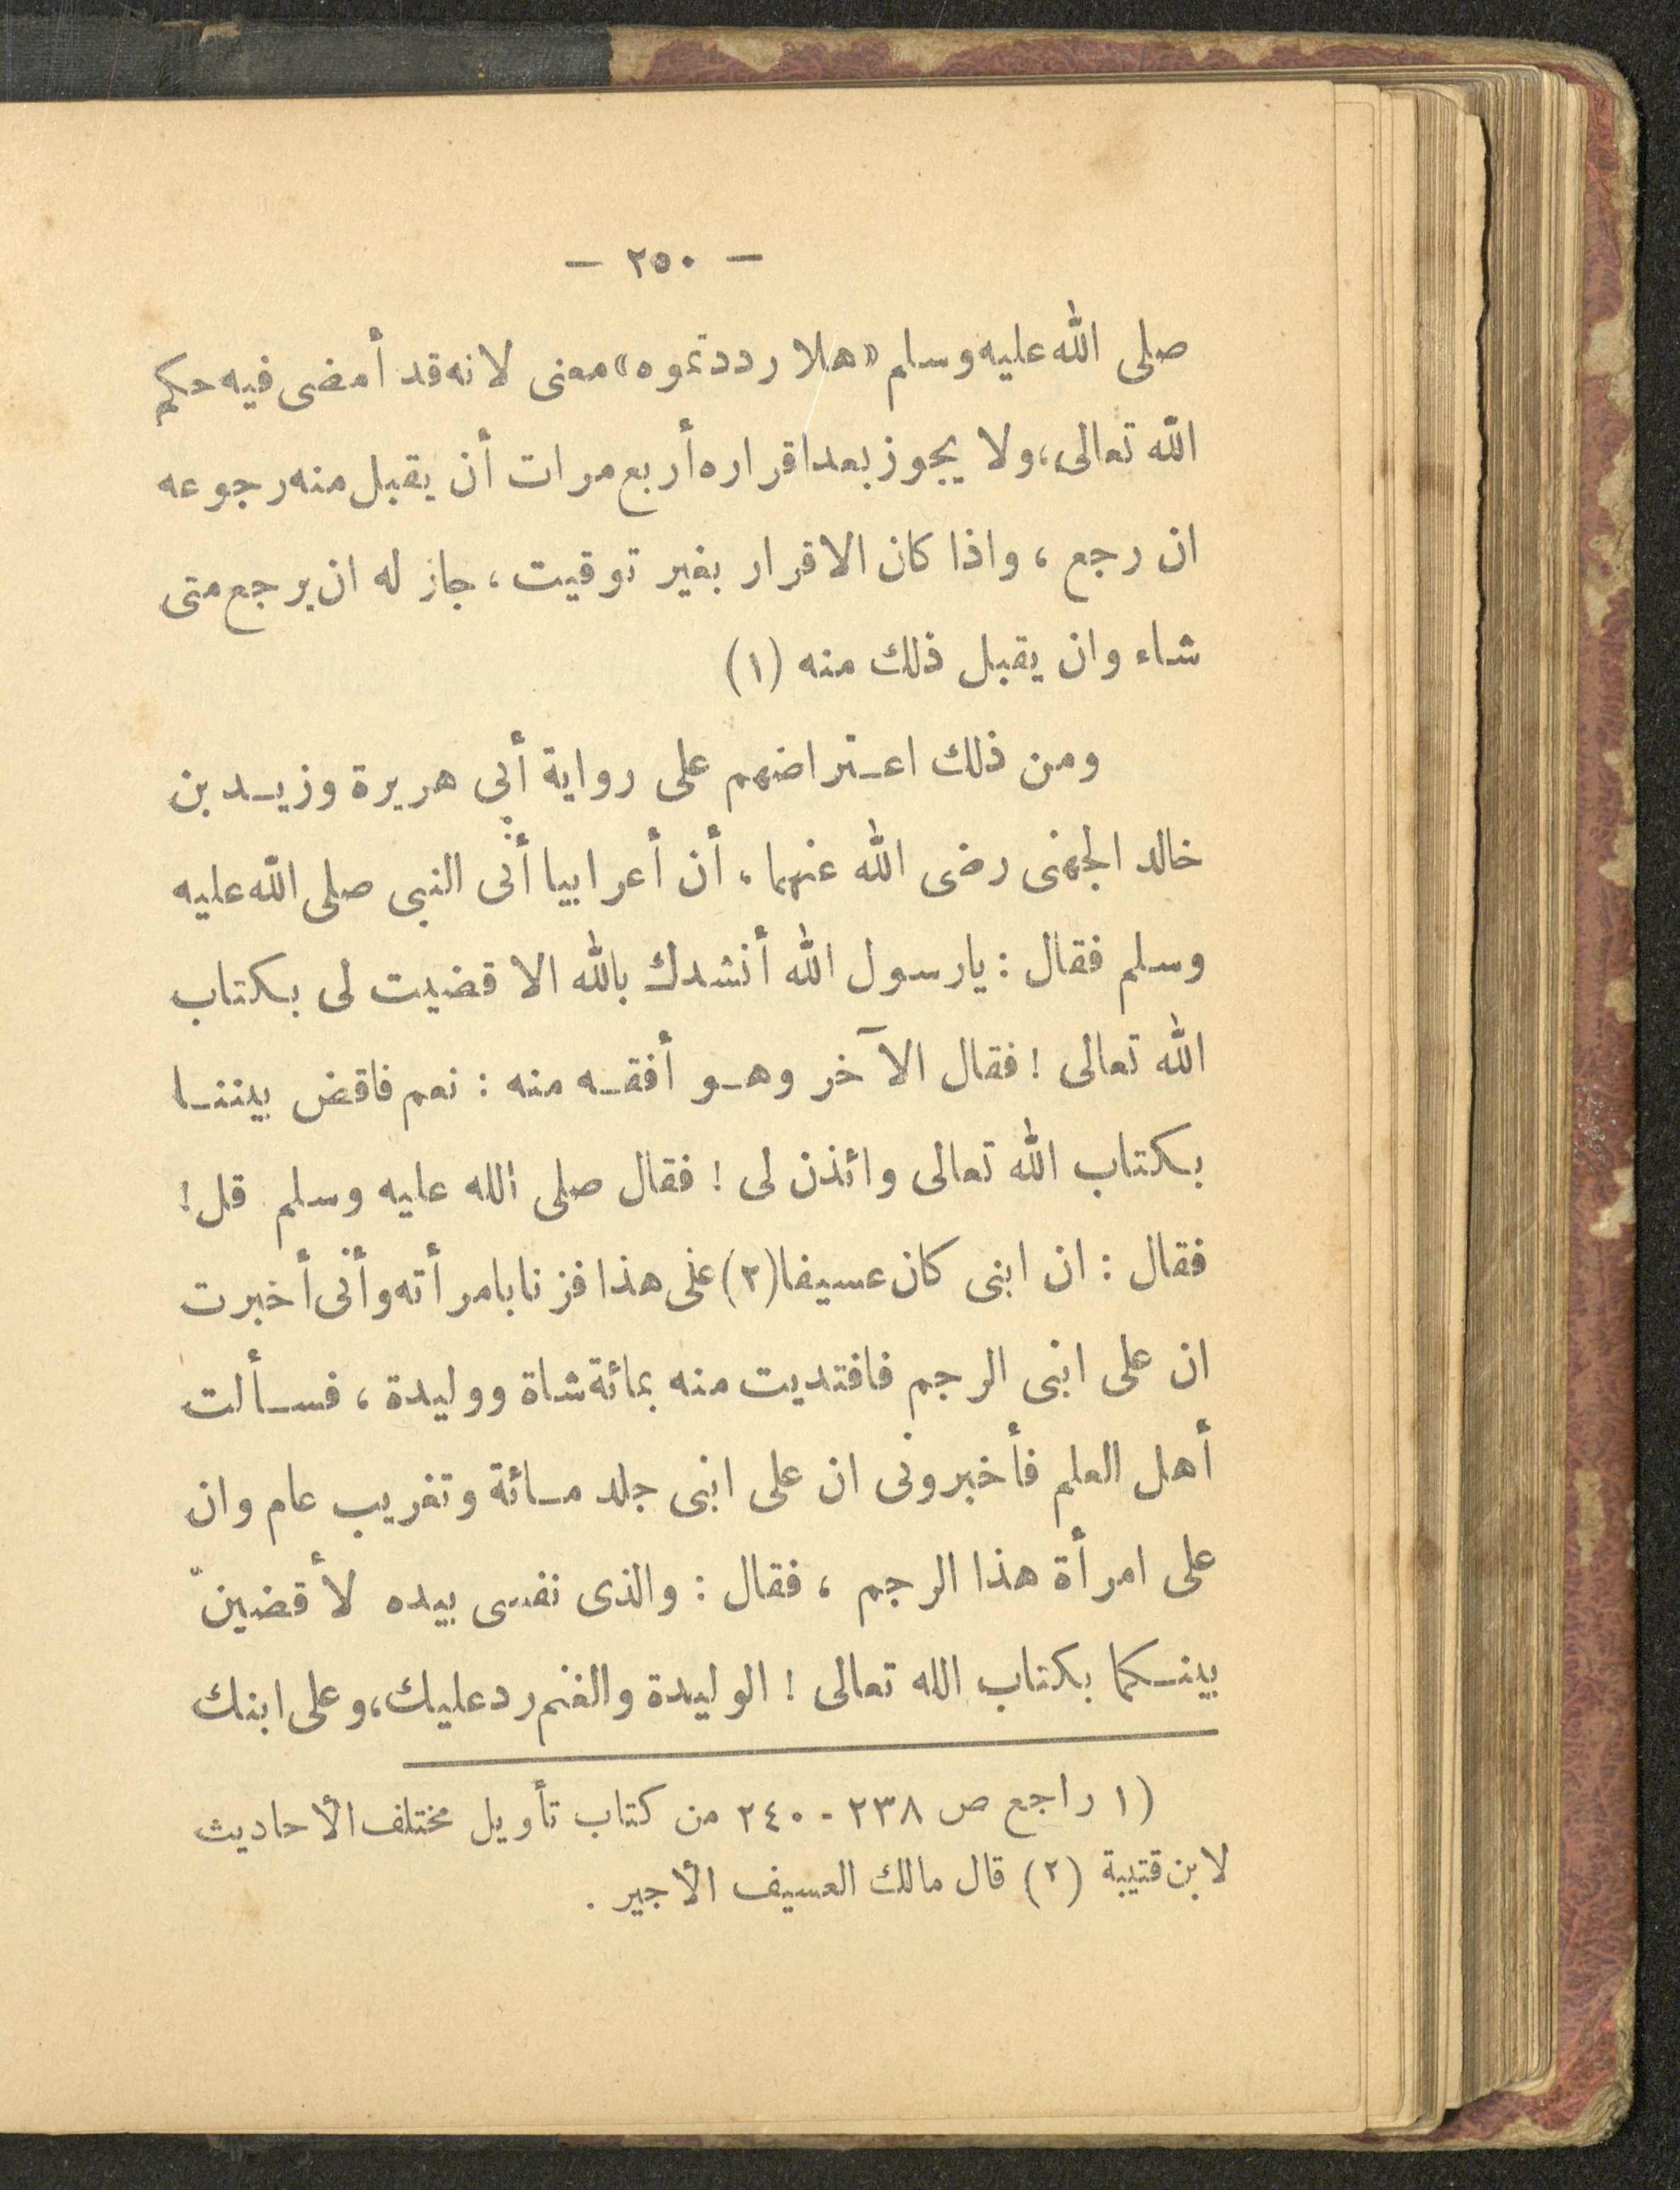 — ٢٥٠ —
صلى الله عليه وسلم «هلا رددتموه» معنى لانه قد أمضى فيه حكم
الله تعالى، ولا يجوز بعد اقراره أربع مرات أن يقبل منه رجوعه
ان رجع ، واذا كان الاقرار بغير توقيت ، جاز له ان يرجع متى
شاء وان يقبل ذلك منه (١)
ومن ذلك اعتراضهم على رواية أبى هريرة وزيد بن
خالد الجهنى رضى الله عنهما ، أن أعرابيا أتى النبى صلى الله عليه
وسلم فقال : يارسول الله أنشدك بالله الا قضيت لى بكتاب
الله تعالى ! فقال الآخر وهو أفقه منه : نعم فاقض بيننا
بكتاب الله تعالى وائذن لى ! فقال صلى الله عليه وسلم قل !
فقال : ان ابنى كان عسيفا (٢) على هذا فزنا بامرأته وأنى أخبرت
ان على ابنى الرجم فافتديت منه بمائة شاة ووليدة ، فسألت
أهل العلم فأخبرونى ان على ابنى جلد مائة وتغريب عام وان
على امرأة هذا الرجم ، فقال : والذى نفسى بيده لأقضينّ
بينكما بكتاب الله تعالى ! الوليدة والغنم رد عليك، وعلى ابنك
(١ راجع ص ٢٣٨ - ٢٤٠ من كتاب تأويل مختلف الأحاديث
لابن قتيبة (٢) قال مالك العسيف الأجير .